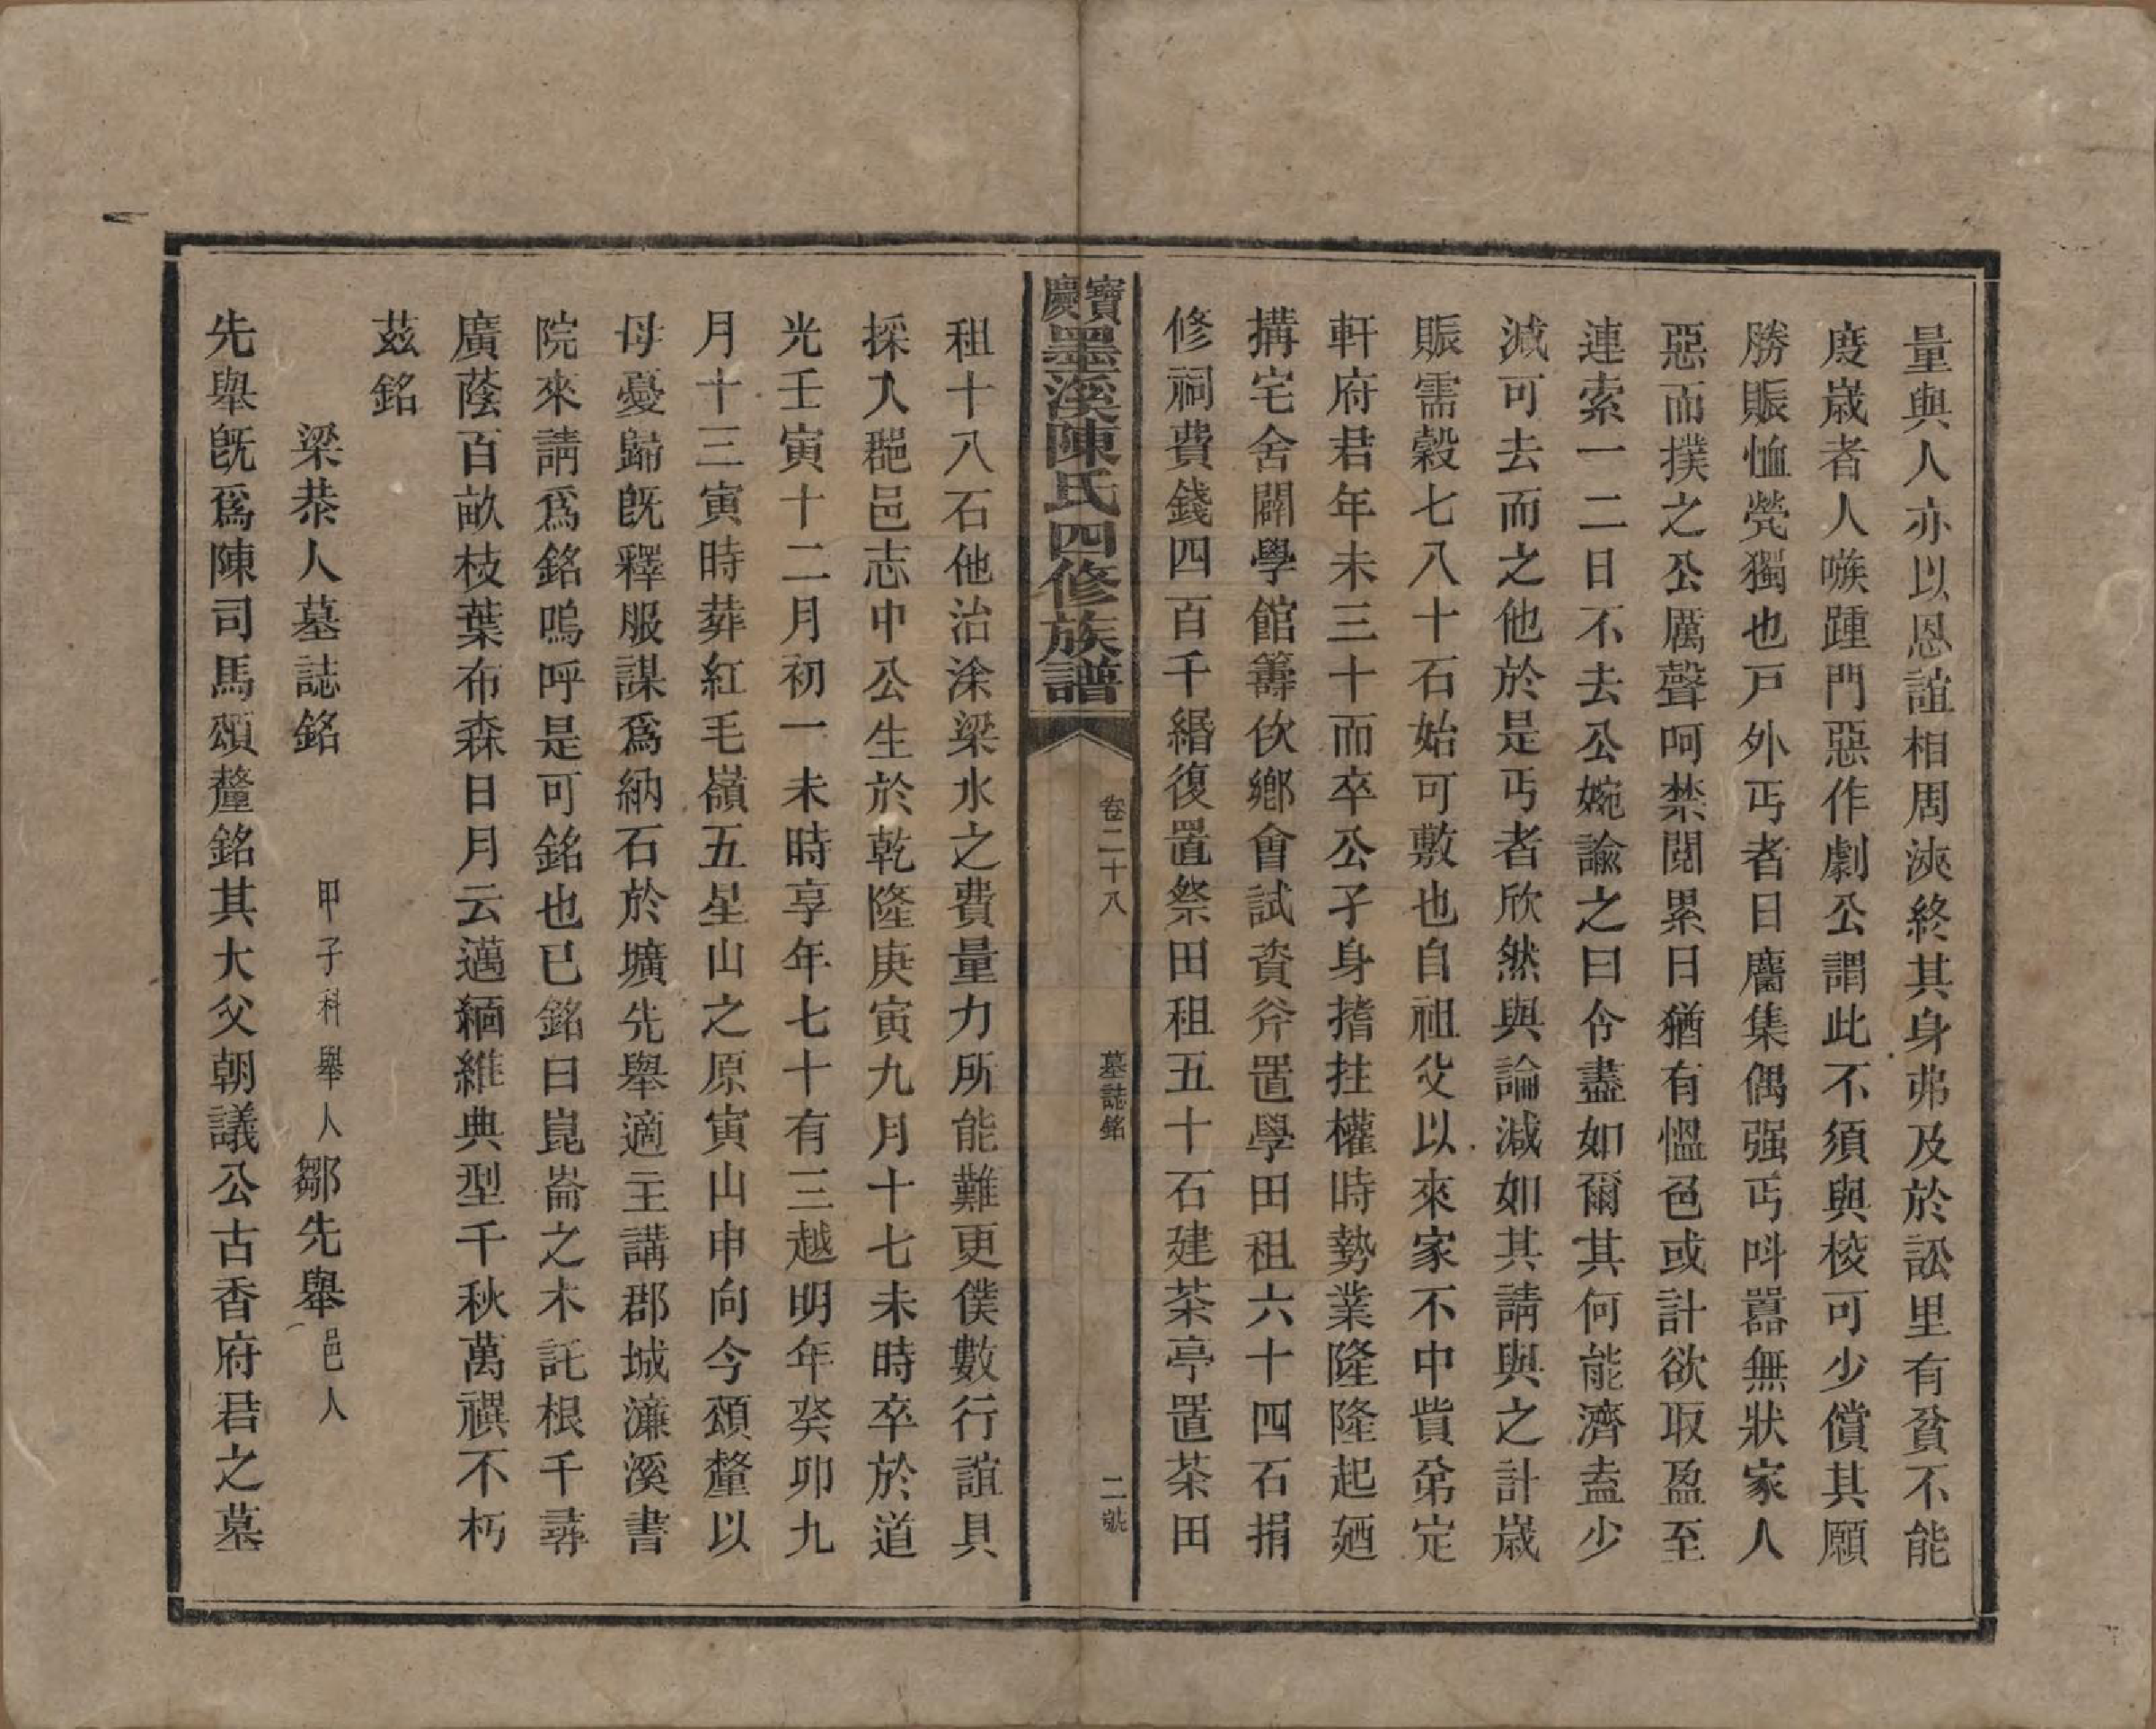 量與人亦以恩誼相周浹終其身弗及於訟里有貧不能
度歲者人嗾踵門惡作劇公謂此不須與梭可少償其願
勝賑恤煢獨也戸外丐者日麕集偶强丐呌嚣無狀家人
惡而撲之公厲聲呵禁閱累日猶有慍色或計欲取盈至
連索一二日不去公婉諭之曰令盡如爾其何能濟盍少
減可去而之他於是丐者欣然與論減如其請與之計歲
賑需穀七八十石始可敷也自祖父以來家不中貲弟定
軒府君年未三十而卒公孑身揩拄權時勢業隆隆起廼
搆宅舍闢學館籌佽鄕會試資斧置學田租六十四石捐
修祠費錢四百千緡復置祭田租五十石建茶亭置茶田
寶慶墨溪陳氏四修族譜
卷二十八
墓誌銘
二號
租十八石他治涂梁水之費量力所能難更僕數行誼具
採入郡邑志中公生於乾隆庚寅九月十七未時卒於道
光壬寅十二月初一未時享年七十有三越明年癸卯九
月十三寅時葬紅毛嶺五星山之原寅山申向今頌釐以
母憂歸旣釋服謀爲納石於壙先舉適主講郡城濂溪書
院來請爲銘嗚呼是可銘也已銘曰崑崙之木託根千尋
廣蔭百畝枝葉布森日月云邁緬維典型千秋萬禩不朽
茲銘
梁恭人墓誌銘 甲子科舉人鄒先舉邑人
先舉旣爲陳司馬頌釐銘其大父朝議公古香府君之墓